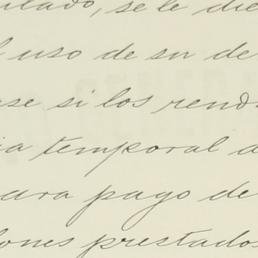 ultado, se le die
l uso de su de
se si los rend
ia temporal d
para pago de
iones prestados